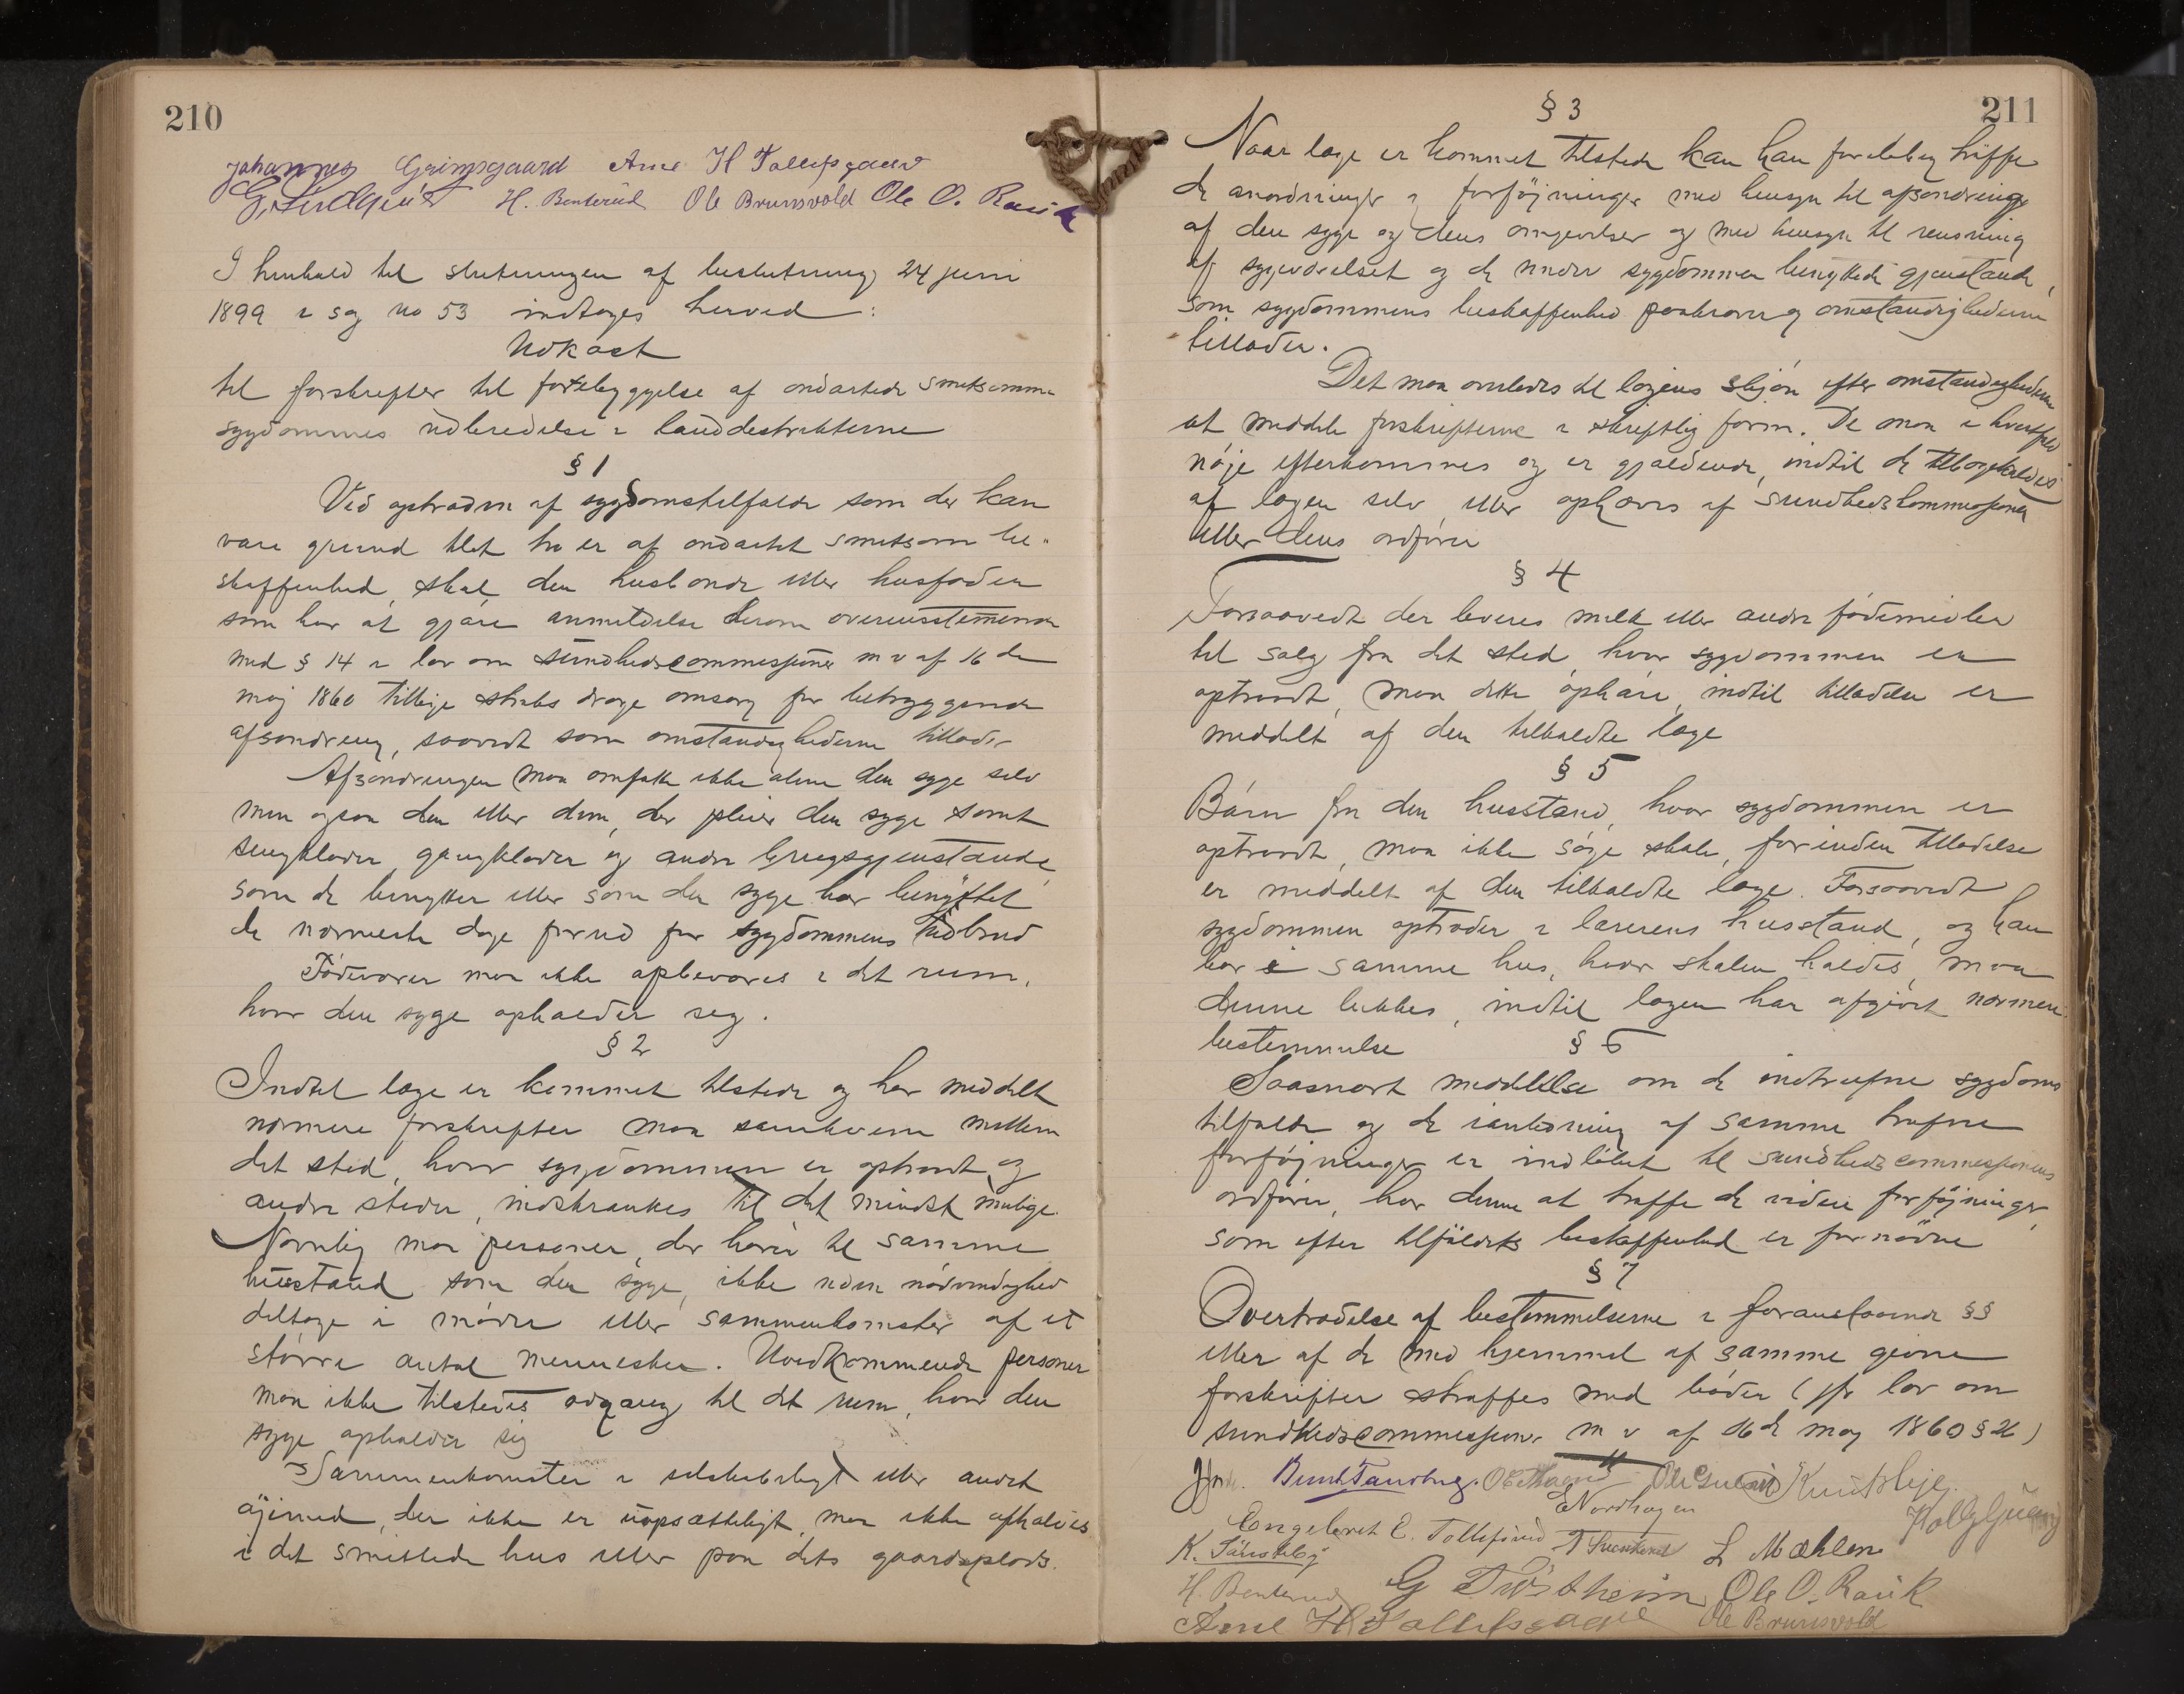 210
Johannes Grimsgaard Arne H Tollefsgaard
H. Benterud Ole Brunsvold Ole O. Rauk
I henhold til slutningen af beslutning 24 juni
1899 i sag no 53 indtages herved :
Udkast
til forskrifter til forebyggelse af ondartede smitsomme
sygdommes udbredelse i landdistrikterne
§ 1
Ved optræden af sygdomstilfælde som der kan
være grund til at tro er af ondartet smitsom be-
skaffenhed, skal den husbonde eller husfader
som har at gjøre anmeldelse derom overensstemmende
med § 14 i lov om sundhedscommissjoner m v af 16 de
maj 1860 tillige straks drage omsorg for betryggende
afsondring, saavidt som omstændighederne tillader
Afsondringen maa omfatte ikke alene den syge selv
men ogsaa den eller dem, der pleier den syge samt
sengklæder, gangklæder og andre brugsgjenstande,
som de benytter eller som den syge har benyttet
de nærmeste dage forud for sygdommens udbrud
Fødevarer maa ikke opbevares i det rum,
hvor den syge opholder seg.
§ 2
Indtil læge er kommet tilstede og har meddelt
nærmere forskrifter maa samkvem mellem
det sted, hvor sygdommen er optraadt og
andre steder, indskrænkes til det mindst mulige.
Navnlig maa personer, der hører til samme
husstand som den syge, ikke uden nødvendighed
deltage i møder eller sammenkomster af et
større antal mennesker. Uvedkommende personer
maa ikke tilstedes adgang til det rum, hvor den
syge opholder sig
Sammenkomster i selskabeligt eller andet
øjemed, der ikke er uopsætteligt, maa ikke afholdes
i det smittede hus eller paa dets gaardsplads.
211
§ 3
Naar læge er kommet tilstede kan han foreløbig træffe
de anordninger og forføjninger med hensyn til afsondring
af den syge og dens omgivelser og med hensyn til rensning
af sygeværelset og de under sygdommen benyttede gjenstande,
som sygdommens beskaffenhed paakræver og omstændighederne
tillader.
Det maa overlades til lægens skjøn efter omstændighederne
at meddele forskrifterne i skriftlig form. De maa i hvertfald
nøje efterkommes og er gjældende, indtil de tilbagekaldes
af lægen selv eller ophæves af sundhedskommissjonen
eller dens ordfører
§ 4
Forsaavidt der leveres melk eller andre fødemidler
til salg fra det sted, hvor sygdommen er
optraadt, maa dette ophøre, indtil tilladelse er
meddelt af den tilkaldte læge
§ 5
Børn fra den husstand, hvor sygdommen er
optraadt, maa ikke søge skole, forinden tilladelse
er meddelt af den tilkaldte læge. Forsaavidt
sygdommen optræder i lærerens husstand, og han
bor i samme hus, hvor skolen holdes, maa
denne lukkes, indtil lægen har afgivet nærmere
bestemmelse
§ 6
Saasnart meddelelse om de indtrufne sygdoms
tilfælde og de i anledning af samme trufne
forføjninger er indløbet til sundhedscommissjonens
ordfører, har denne at træffe de videre forføjninger,
som efter tilfældets beskaffenhed er fornødne
§ 7
Overtrædelse af bestemmelserne i foranstaaende §§
eller af de med hjemmel af samme givne
forskrifter straffes med bøder (jfr lov om
sundhedscommissjoner m v af 16 de maj 1860 § 26)
Knut Heje.
E Nordhagen
Engebret E. Tollefsrud L Mæhlen
H. Benterud Ole O. Rauk
Arne H Tollefsgaard Ole Brunsvold